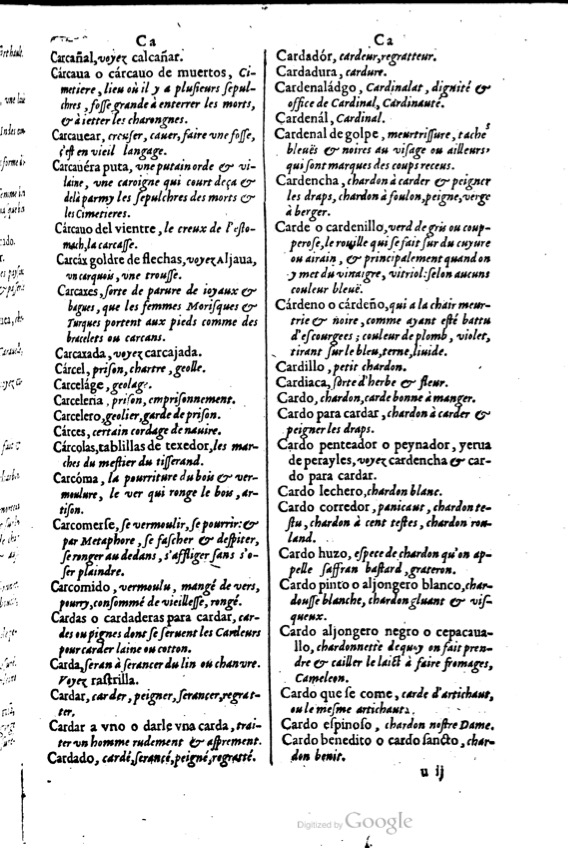 Ca
Carcañal, voyez calcañar.
Cárcaua o cárcauo de muertos, Ci-
metiere, lieu où il y a plusieurs sepul-
chres, fosse grande à enterrer les morts,
& à ietter les charongnes.
Carcauear, creuser, cauer, faire vne fosse,
c'est en vieil langage.
Carcauéra puta, vne putain orde & vi-
laine, vne caroigne qui court deça &
delà parmy les sepulchres des morts &
les Cimetieres.
Cárcauo del vientre, le creux de l'esto-
mach, la carcasse.
Carcáx goldre de flechas, voyez Aljaua,
vn carquois, vne trousse.
Carcaxes, sorte de parure de ioyaux &
bagues, que les femmes Morisques &
Turques portent aux pieds comme des
bracelets ou carcans.
Carcaxada, voyez carcajada.
Cárcel, prison, chartre, geolle.
Carceláge, geolage.
Carceleria, prison, emprisonnement.
Carcelero, geolier, garde de prison.
Cárces, certain cordage de nauire.
Cárcolas, tablillas de texedor, les mar-
ches du mestier du tisserand.
Carcóma, la pourriture du bois & ver-
moulure, le ver qui ronge le bois, ar-
tison.
Carcomerse, se vermoulir, se pourrir: &
par Metaphore, se fascher & despiter,
se ronger au dedans, s'affliger sans s'o-
ser plaindre.
Carcomido, vermoulu, mangé de vers,
pourry, consommé de vieillesse, rongé.
Cardas o cardaderas para cardar, car-
des ou pignes dont se seruent les Cardeurs
pour carder laine ou cotton.
Carda, seran à serancer du lin ou chanvre.
Voyez rastrilla.
Cardar, carder, peigner, serancer, regrat-
ter.
Cardar a vno o darle vna carda, trai-
ter vn homme rudement & asprement.
Cardado, cardé, serancé, peigné, regratté.
Ca
Cardadór, cardeur, regratteur.
Cardadura, cardure.
Cardenaládgo, Cardinalat, dignité &
office de Cardinal, Cardinauté.
Cardenál, Cardinal.
Cardenal de golpe, meurtrissure, taches
bleuës & noires au visage ou ailleurs,
qui sont marques des coups receus.
Cardencha, chardon à carder & peigner
les draps, chardon à foulon, peigne, verge
à berger.
Carde o cardenillo, verd de gris ou coup-
perose, le rouille qui se fait sur du cuyure
ou airain, & principalement quand on
y met du vinaigre, vitriol: selon aucuns
couleur bleuë.
Cárdeno o cárdeño, qui a la chair meur-
trie & noire, comme ayant esté battu
d'escourgees; couleur de plomb, violet,
tirant sur le bleu, terne, liuide.
Cardillo, petit chardon.
Cardiaca, sorte d'herbe & fleur.
Cardo, chardon, carde bonne à manger.
Cardo para cardar, chardon à carder &
peigner les draps.
Cardo penteador o peynador, yerua
de perayles, voyez cardencha & car-
do para cardar.
Cardo lechero, chardon blanc.
Cardo corredor, panicaut, chardon te-
stu, chardon à cent testes, chardon rou-
land.
Cardo huzo, espece de chardon qu'on ap-
pelle saffran bastard, grateron.
Cardo pinto o aljongero blanco, char-
dousse blanche, chardon gluant & vis-
queux.
Cardo aljongero negro o cepacaua-
llo, chardonnette dequoy on fait pren-
dre & cailler le laict à faire fromages,
Cameleon.
Cardo que se come, carde d'artichaut,
ou le mesme artichaut.
Cardo espinoso, chardon nostre Dame.
Cardo benedito o cardo sancto, char-
don benit.
u ij
Digitized by Google